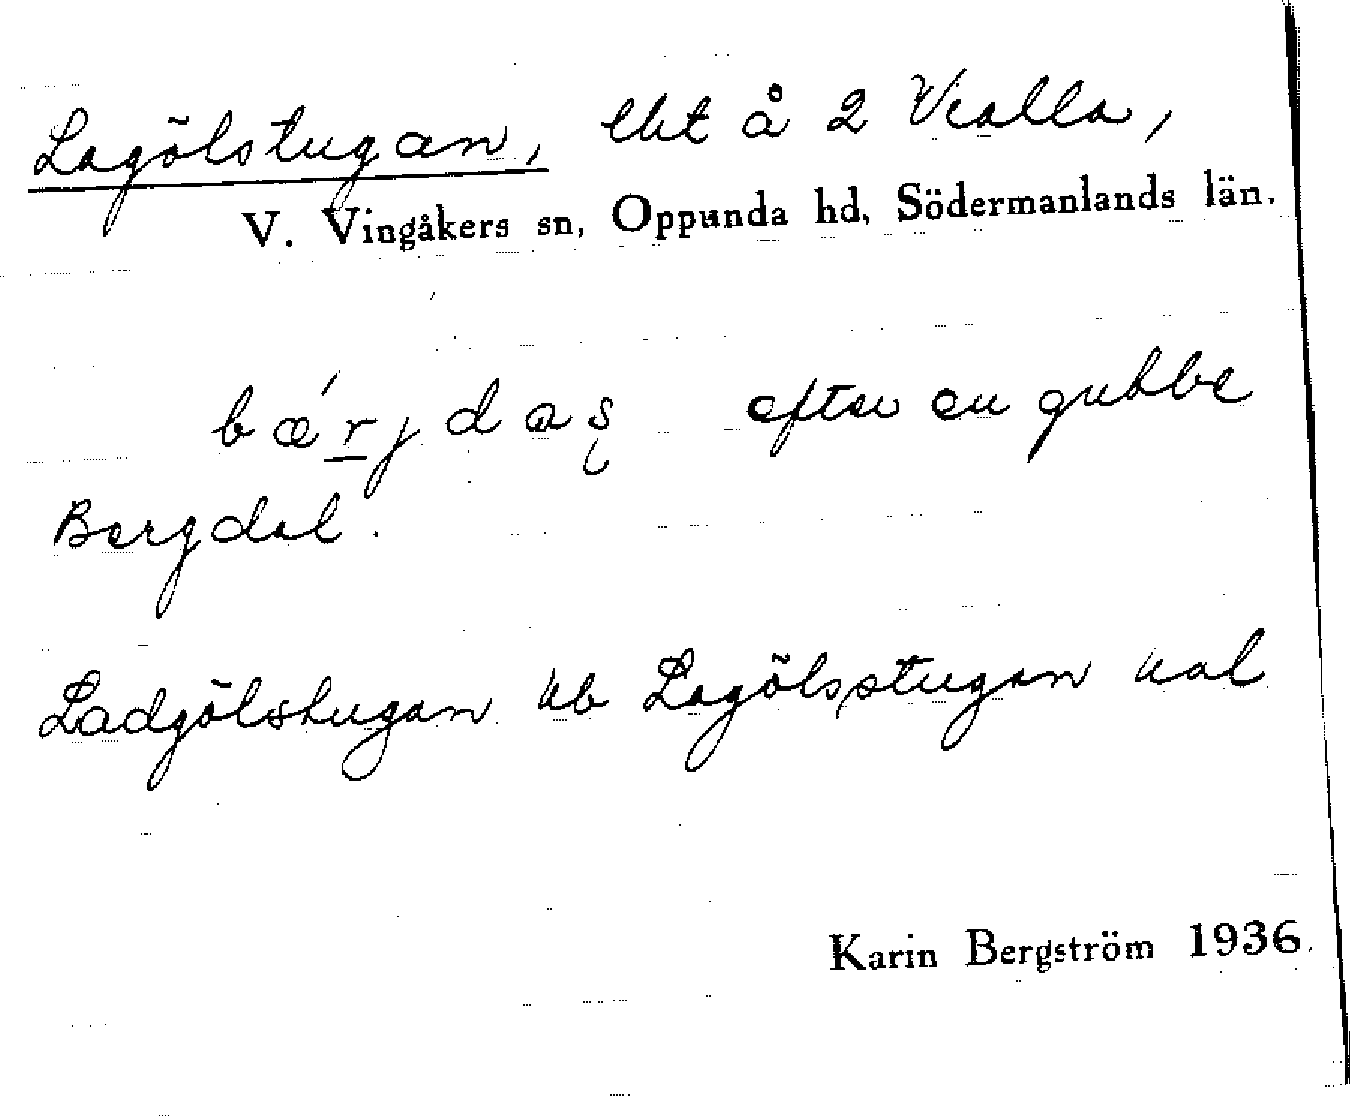 Lagölstugan, lht å 2 Vialla,
V. Vingåkers sn, Oppunda hd, Södermanlands län.
bǽrjdas efter en gubbe
Bergdal.
Ladgölstugan hb Lagölsstugan kal
Karin Bergström 1936